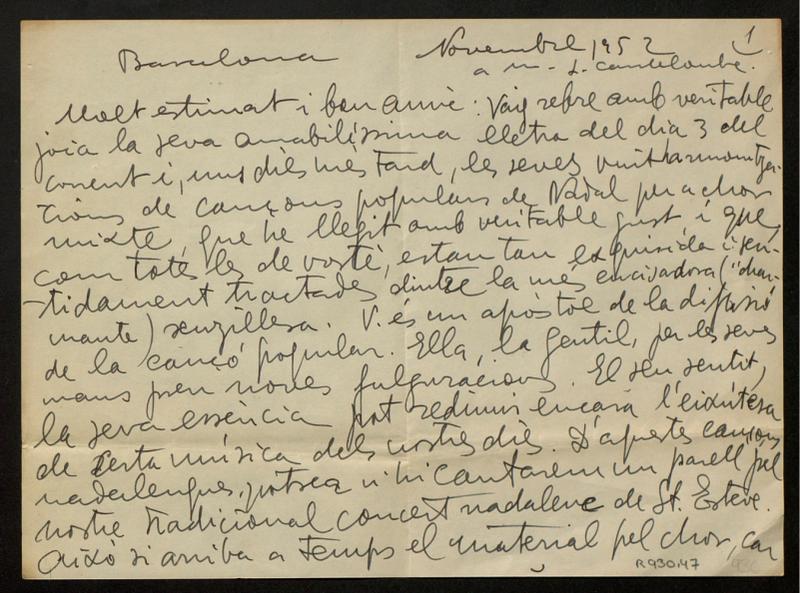 1
Barcelona Novembre 1952
a M. J. Canteloube.
Molt estimat i bon amic: Vaig rebre amb veritable
joia la seva amabilíssima lletra del dia 3 del
corrent i, uns dies més tard, les seves vuit harmonitza-
cions de cançons populars de Nadal per a chor
mixte, que he llegit amb veritable gust i que,
com totes les de vostè, estan tan exquisida i sen-
tidament tractades dintre la més encisadora ("char-
mante) senzillesa. V. és un apòstol de la difusió
de la cançó popular. Ella, la gentil, per les seves
mans pren noves fulguracions. El seu sentit,
la seva essència pot redimir encara l'eixutesa
de certa música dels nostres dies. D'aquestes cançons
nadalenques, potser n'hi cantarem un parell pel
nostre tradicional concert nadalenc de St. Esteve.
Això si arriba a temps el material pel chor, car
R930.47